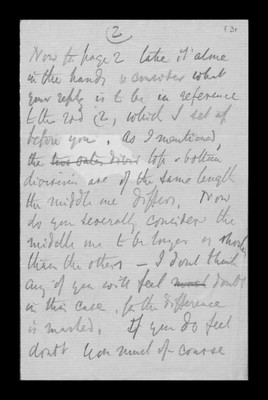 (2)
Now to page 2 take it alone
in the hands & consider what
your reply is to be in reference
to the 2nd (2, which I set up
before you. As I mentioned,
the two outer divns top & bottom
divisions are of the same length
the middle one differs. Now
do you severally consider the
middle one to be longer or shorter
than the others — I dont think
any of you will feel much doubt
in this case, for the difference
is marked. If you do feel
doubt you must of course